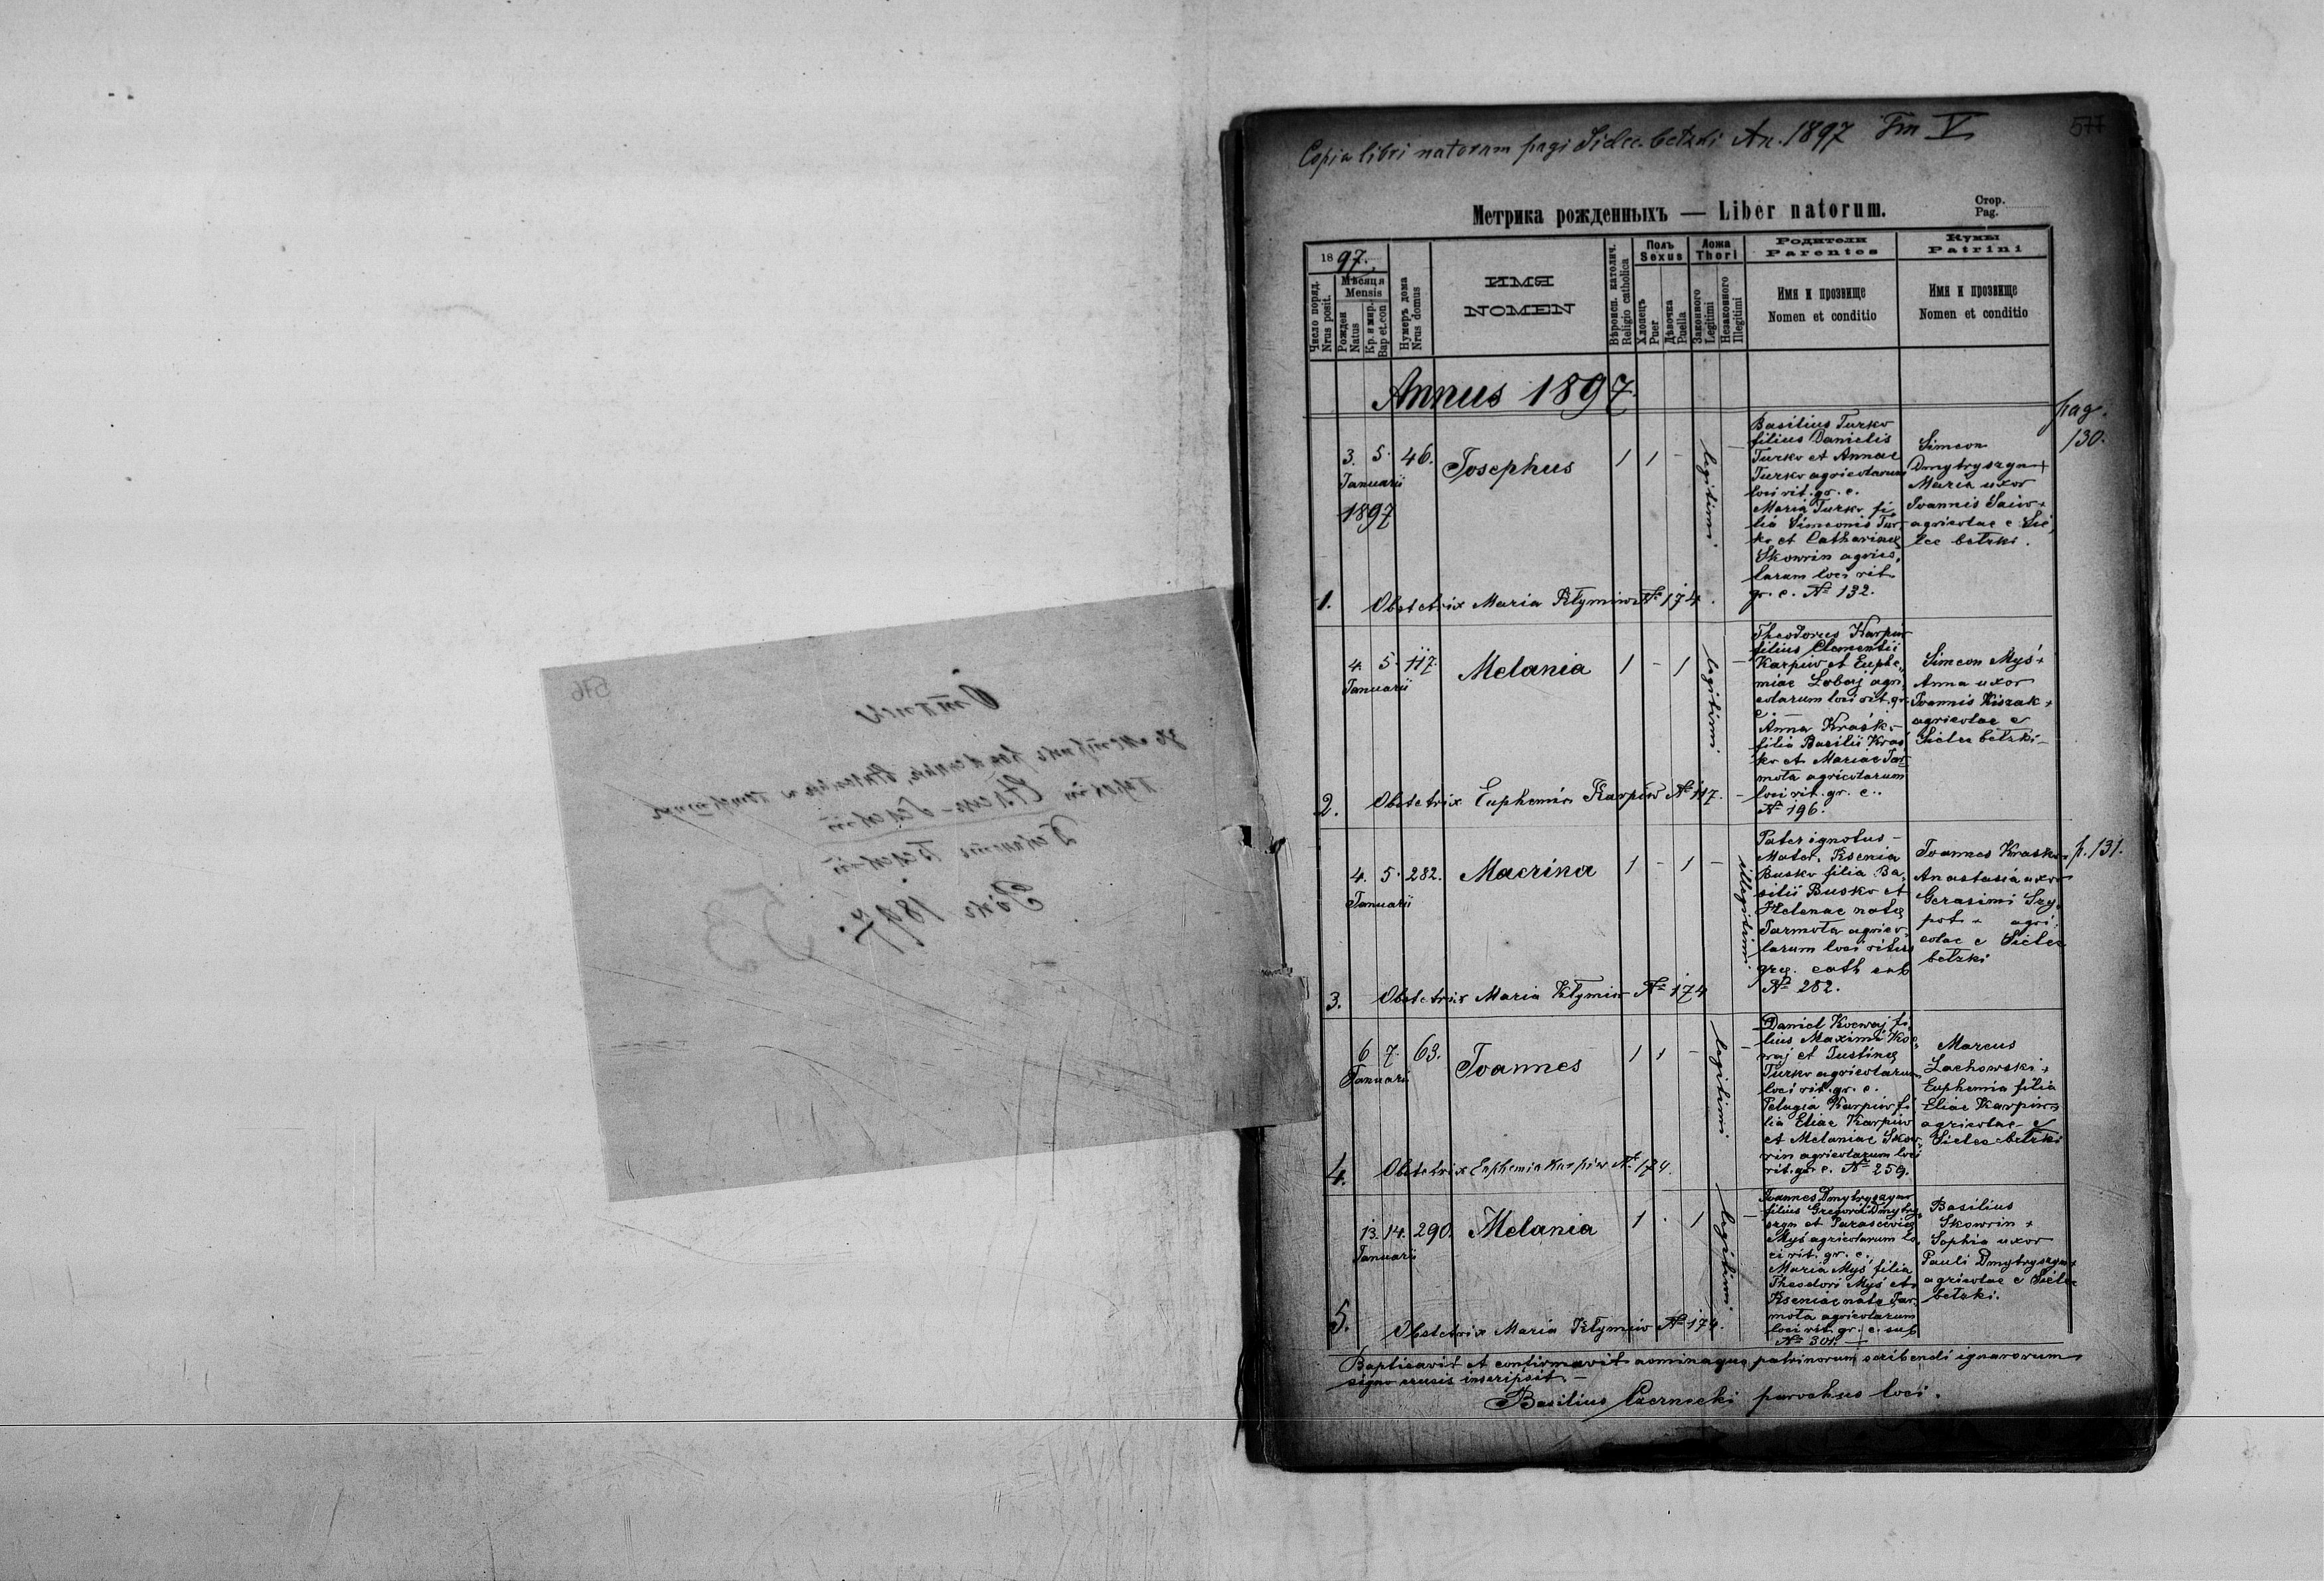 Copia libri natorum pagi Sielec bełzki An. 1897 Tm V
577
Метрика рожденныхъ — Liber natorum.
Стор.
Pag.
1897.
Мѣсяця
Mensis
Число поряд.
Nrus posit.
Рожден
Natus
Кр. и мир.
Bap et con
Нумеръ дома
Nrus domus
ИМЯ
NOMEN
Вѣроисп. католич.
Religio catholica
Полъ
Sexus
Хлопецъ
Puer
Дѣвочка
Puella
Ложа
Thori
Законного
Legitimi
Незаконного
Illegitimi
Родители
Parentes
Имя и прозвище
Nomen et conditio
Кумы
Patrini
Имя и прозвище
Nomen et conditio
Annus 1897
pag.
130.
3. 5. 46. Josephus 1 1 -
Januarii
1897
legitimi
Basilius Turko
filius Danielis
Turko et Annae
Turko agricolarum
loci rit. gr. c.
Maria Turko fi-
lia Simeonis Tur-
ko et Catharinae
Skowrin agrico-
larum loci rit.
gr. c. № 132.
Simeon
Dmytryszyn +
Maria uxor
Joannis Saiw +
agricolae e Sie-
lec bełzki.
1. Obstetrix Maria Kłymiw № 174.
4. 5. 117. Melania 1 - 1
Januarii
legitimi
Theodorus Karpiw
filius Clementii
Karpiw et Euphe-
miae Lobaj agri-
colarum loci rit. gr.
c.
Anna Kraśko
filia Basilii Kraś-
ko et Mariae Jar-
mota agricolarum
loci rit. gr. c.
№ 196.
Simeon Myś +
Anna uxor
Joannis Kiszak +
agricolae e
Sielec bełzki
2. Obstetrix Euphemia Karpiw № 117.
4. 5. 282. Macrina 1 - 1 -
Januarii
illegitimi
Pater ignotus -
Mater. Ksenia
Busko filia Ba-
silii Busko et
Helenae natae
Jarmota agrico-
larum loci ritus
grę. cath sub
№ 282.
Joannes Krasko +
Anastasia uxor
Gerasimi Szy-
pot + agri-
colae e Sielec
bełzki
p. 131.
3. Obstetrix Maria Kłymiw № 174
6 7. 63. Joannes 1 1 -
Januarii
legitimi
Daniel Kocwaj fi-
lius Maximi Koc-
waj et Justinae
Turko agricolarum
loci rit. gr. c.
Pelagia Karpiw fi-
lia Eliae Karpiw
et Melaniae Skow-
rin agricolarum loci
rit. gr. c. № 259.
Marcus
Lachowski +
Euphemia filia
Eliae Karpiw +
agricolae e
Sielec bełzki
4. Obstetrix Euphemia Karpiw № 174.
13. 14. 290. Melania 1 . 1
Januarii
legitimi
Joannes Dmytryszyn
filius Gregorii Dmytry-
szyn et Parasceviae
Myś agricolarum lo-
ci rit. gr. c.
Maria Myś filia
Theodori Myś et
Kseniae natae Jar-
mota agricolarum
loci rit. gr. c. sub
№ 301.
Basilius
Skowrin +
Sophia uxor
Pauli Dmytryszyn +
agricolae e Sielec
bełzki.
5. Obstetrix Maria Kłymiw № 174.
Baptisavit et confirmavit nominaque patrinorum scribendi ignarorum
signo crucis inscripsit. -
Basilius Czernecki parochus loci.
576
Рокъ 1897.
53